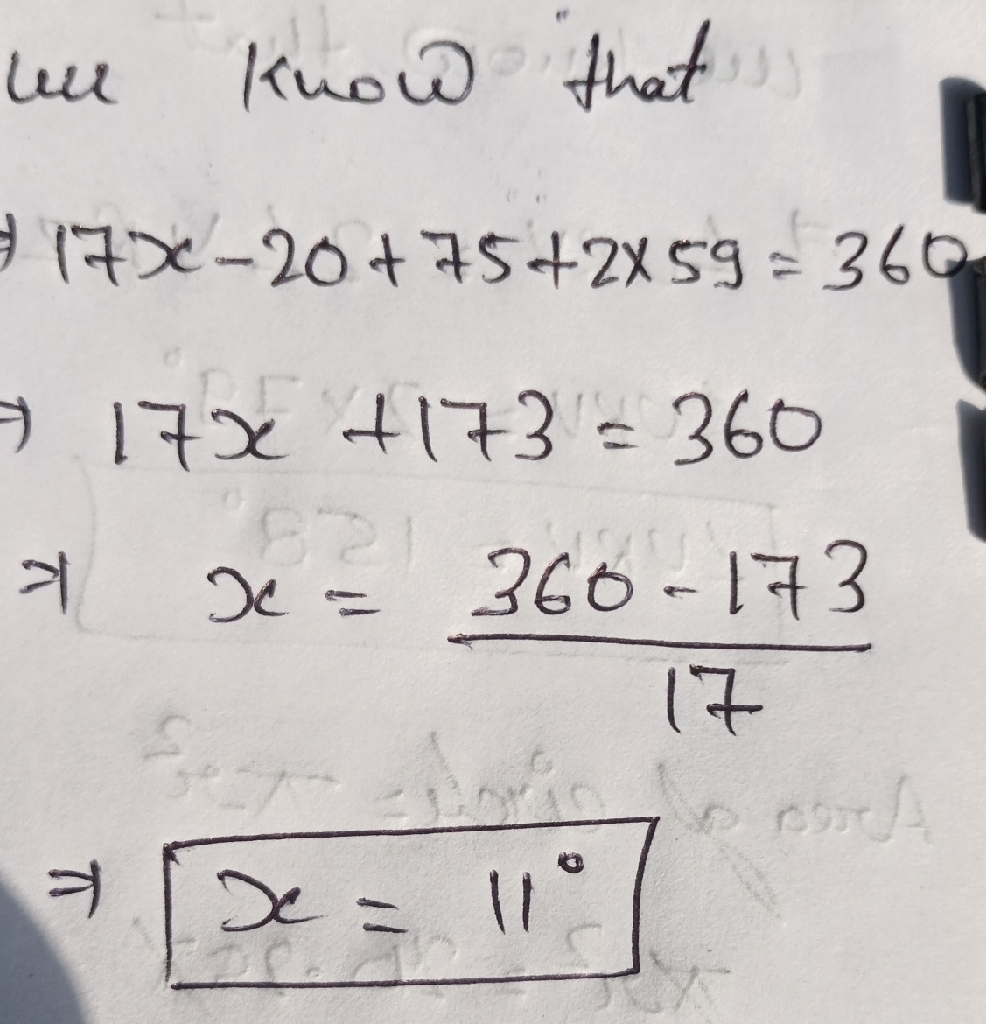 we know that
⇒ 17x - 20 + 75 + 2x59 = 360
⇒ 17x + 173 = 360
⇒ x = 360 - 173
17
⇒ x = 11°